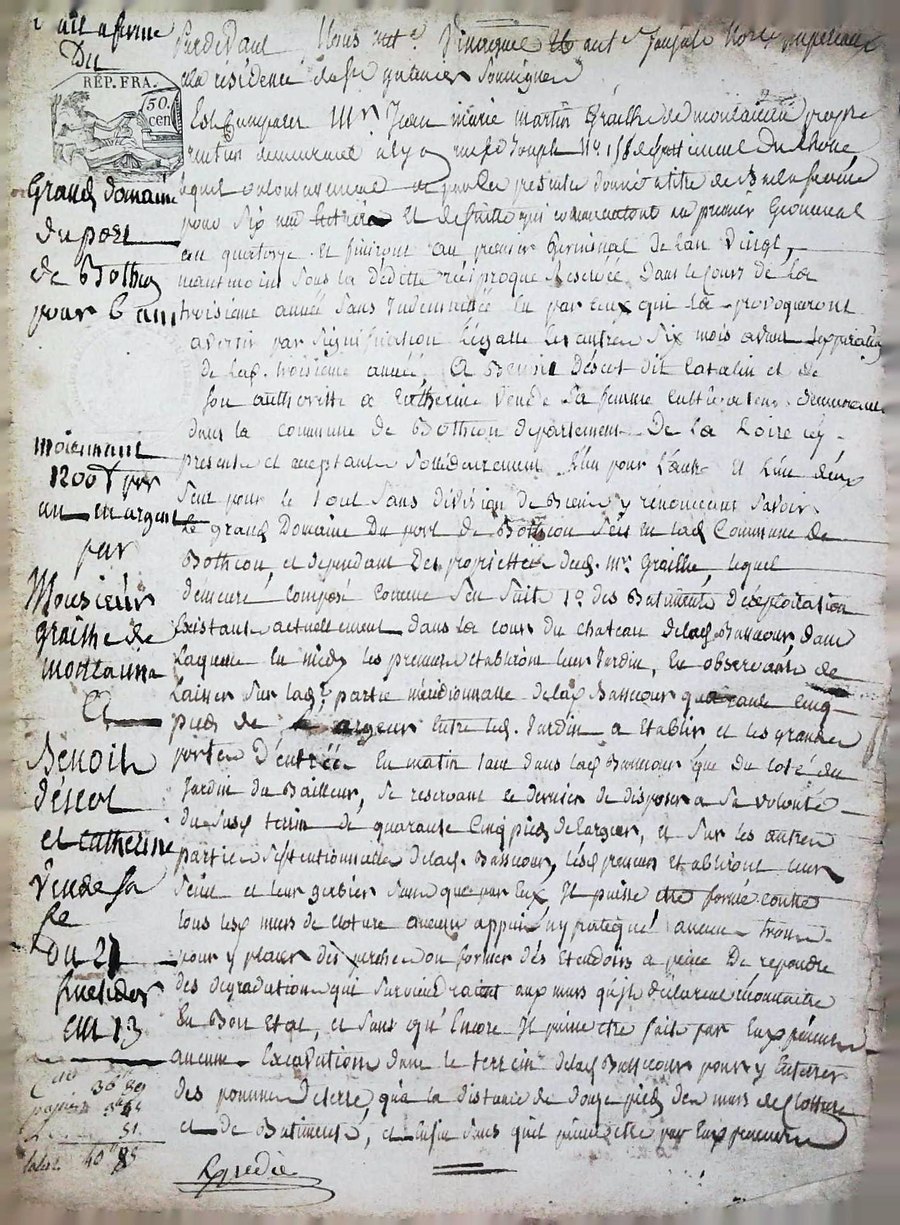 Bail a ferme
Du
RÉP. FRA.
50.
cen
Grand domaine
du port
de Botheon
pour 6 ans
moiennant
1200 par
an en argent
par
Monsieur
graithe de
montaiana
Et
Benoit
descot
et catherine
vende sa
fe
Du 21
fructidor
an 13
Pardevant Nous
a la residence de soussignes
Est Comparu Mr Jean marie martin Graithe de
demeurant a Lyon rue St Joseph No. 158 departement Du Rhône
lequel volontairement a par les presentes donné a titre de Bail a ferme
pour six ans et de suite qui commenceront au premier Germinal
an quatorze et finiront au premier Germinal de lan vingt,
neantmoins sous la déditte réciproque reservée Dans le cours de la
troisieme année sans Indemnitée En par ceux qui la provoqueront
avertir par signification légalle les autres six mois avant lexpiration
de lad. troisieme année. A Benoit déscot dit Catalin et de
son authorité a Catherine Vende sa femme cultivateurs demeurant
dans la commune de Botheon département De la Loire icy
presents et acceptants solidairement L'un pour L'autre et L'un deux
seul pour le tout sans division de Biens y rénoncant savoir
Le grand Domaine Du port de Botheon sis en lad Commune de
Botheon, et dependant Des proprietés dud. mr. Graithe, lequel
démeure Composé comme s'en suit 1o. des Batiments d'exploitation
Existants actuellement dans la cour du chateau delad Bassecour dans
laquelle En midy les preneurs etabliront leur Jardin, En observant de
Laisser sur lad. partie méridionnalle delad Bassecour quarante cinq
pieds de largeur entre led. Jardin a Etablir et les grandes
portes D'entrée En matin tant dans lad Bassecour que du coté du
Jardin du Bailleur, se reservant ce dernier de disposer a sa volonté
du susd terrin de quarante Cinq pieds de largeur, et sur les autres
partie septentionnalle delad. Bassecour, lesd preneurs Etabliront leur
et leur gerbier sans que par Eux Il puisse etre formé contre
tous les murs de cloture aucun appui ny pratiqué aucuns trous
pour y placer des perches ou former des Etendoirs a peine De repondre
des degradations qui surviendraient aux murs qu'ils déclarent reconnaitre
En Bon Etat, et sans qu'Encore Il puisse etre fait par Eux preneurs
aucune Excavation dans le terrein delad Bassecour pour y Enterrer
des pommes de terre, qu'a la distance de douze pieds des murs de Cloture
et de Batiments, et Enfin sans quil puisse etre par Eux preneurs